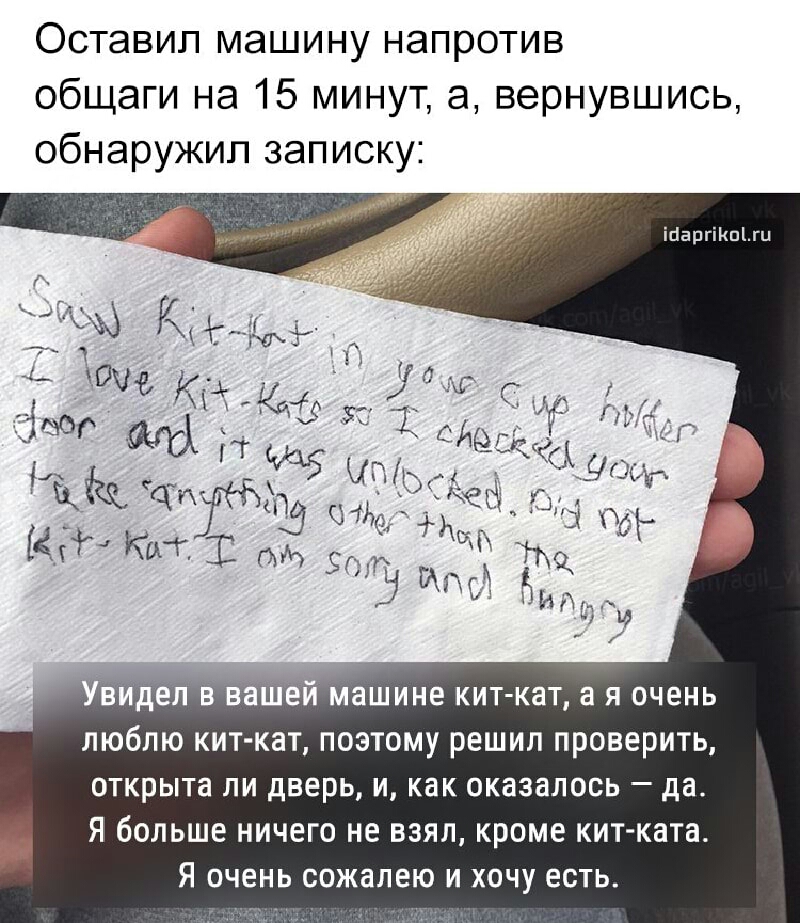 Оставил машину напротив
общаги на 15 минут, а, вернувшись,
обнаружил записку:
idaprikol.ru
Saw Kit-Kat in your cup holder
I love Kit-Kats so I checked your
door and it was unlocked. Did not
take anything other than the
Kit-Kat. I am sorry and hungry
Увидел в вашей машине кит-кат, а я очень
люблю кит-кат, поэтому решил проверить,
открыта ли дверь, и, как оказалось — да.
Я больше ничего не взял, кроме кит-ката.
Я очень сожалею и хочу есть.